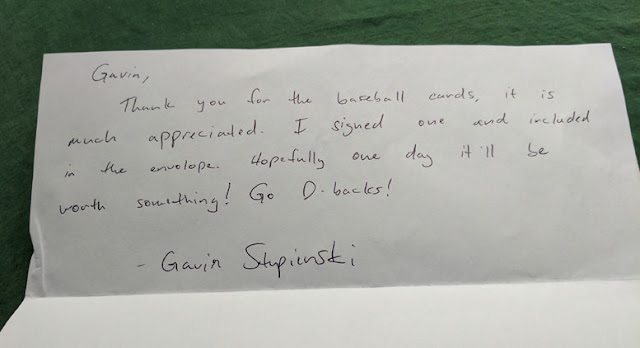 Gavin,
Thank you for the baseball cards, it is
much appreciated. I signed one and included
in the envelope. Hopefully one day it'll be
worth something! Go D-backs!
- Gavin Stupienski